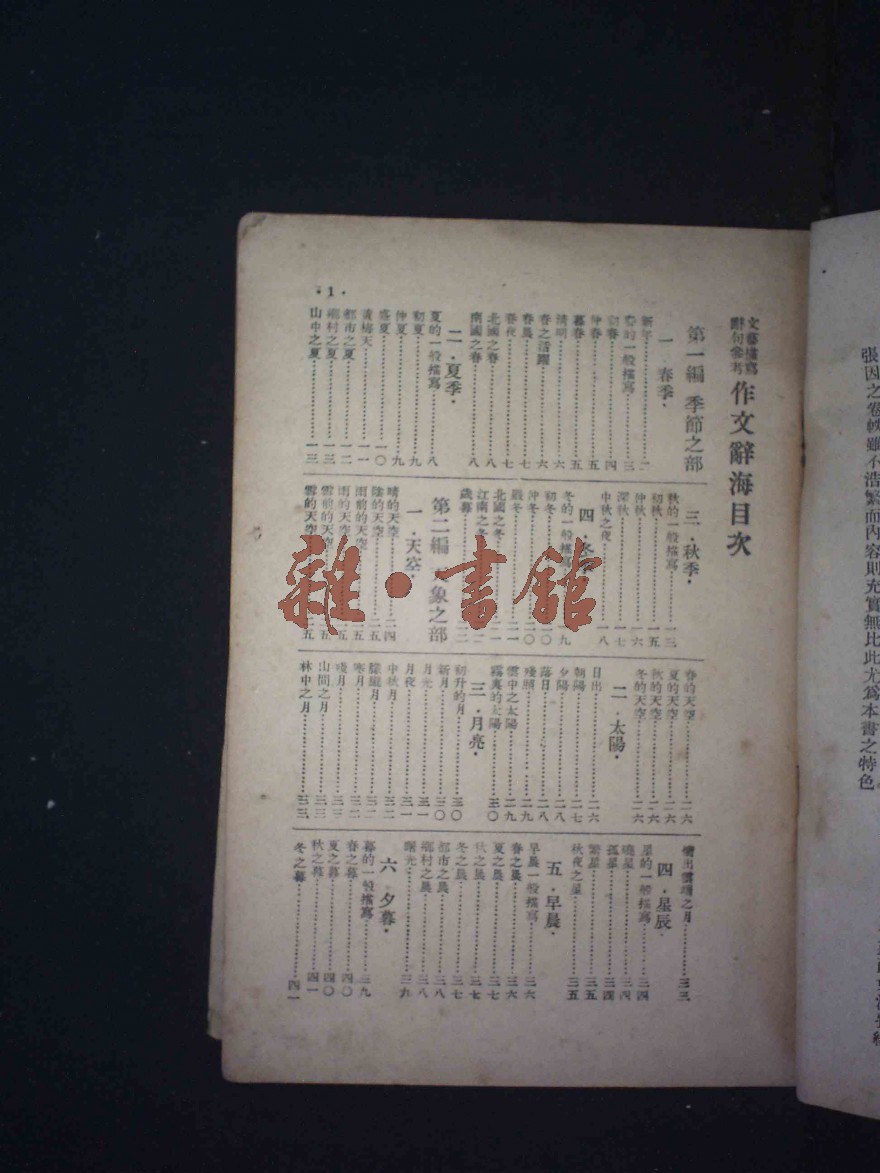 文藝描寫
辭句參考
作文辭海目次
第一編 季節之部
一·春季·
新年……………二
春的一般描寫……三
初春……………四
仲春……………五
暮春……………五
清明……………六
春之活躍…………六
春晨……………七
春夜……………七
北國之春…………八
南國之春…………八
二·夏季·
夏的一般描寫……八
初夏……………九
仲夏……………九
盛夏……………一〇
黃梅天…………一一
都市之夏…………一二
鄉村之夏…………一三
山中之夏…………一三
三·秋季·
秋的一般描寫……一三
初秋……………一五
仲秋……………一六
深秋……………一七
中秋之夜…………一八
四·冬
冬的一般描寫……一九
初冬……………二〇
仲冬……………二〇
嚴冬……………二一
北國之冬
江南之冬
歲暮……………二二
第二編 象之部
一·天空·
晴的天空…………二四
陰的天空…………二五
雨前的天空………二五
雨的天空…………二五
雪前的天空………二五
雪的天空…………二五
春的天空…………二六
夏的天空…………二六
秋的天空…………二六
冬的天空…………二六
二·太陽·
日出……………二六
朝陽……………二七
夕陽……………二八
落日……………二八
殘照……………二九
雲中之太陽………二九
霧裏的太陽………三〇
三·月亮·
初升的月…………三〇
新月……………三〇
月光……………三一
月夜……………三一
中秋月…………三二
朦朧月…………三二
寒月……………三二
殘月……………三三
山間之月…………三三
林中之月…………三三
鑽出雲端之月……三三
四·星辰·
星的一般描寫……三四
曉星……………三四
孤星……………三四
繁星……………三五
秋夜之星…………三五
五·早晨·
早晨一般描寫……三六
春之晨…………三六
夏之晨…………三七
秋之晨…………三七
冬之晨…………三七
都市之晨…………三八
鄉村之晨…………三八
曙光……………三九
六·夕暮·
暮的一般描寫……三九
春之暮…………四〇
夏之暮…………四〇
秋之暮…………四一
冬之暮…………四一
·1·
雜·書館
張因之卷帙雖不浩繁而內容則充實無比此尤爲本書之特色